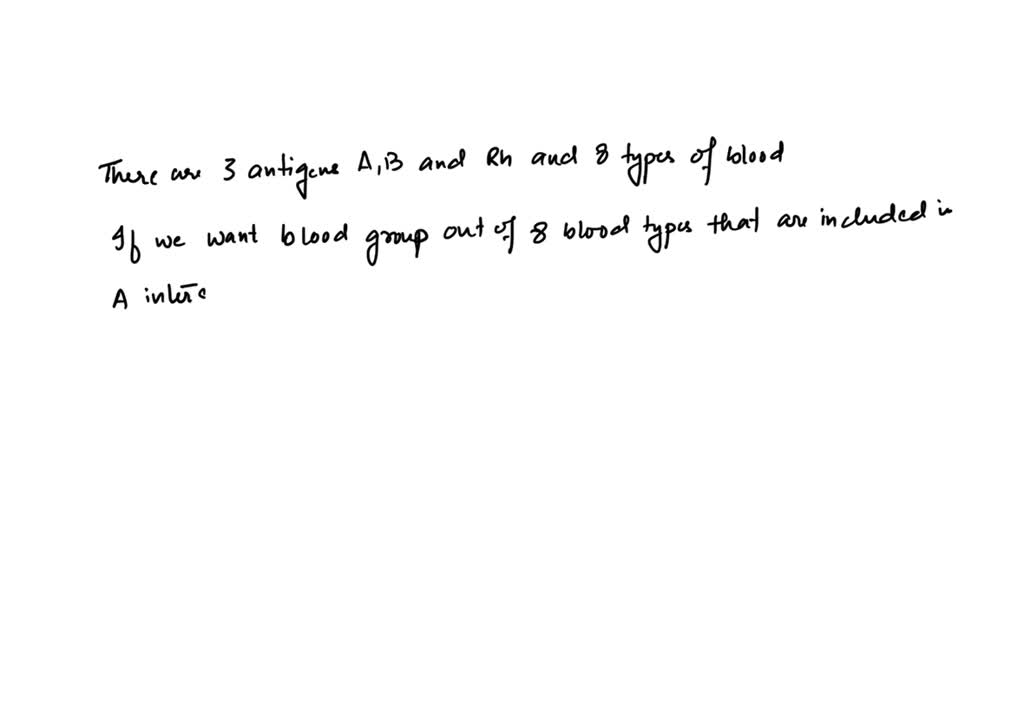 There are 3 antigens A,B and Rh and 8 types of blood
If we want blood group out of 8 blood types that are included in
A interc